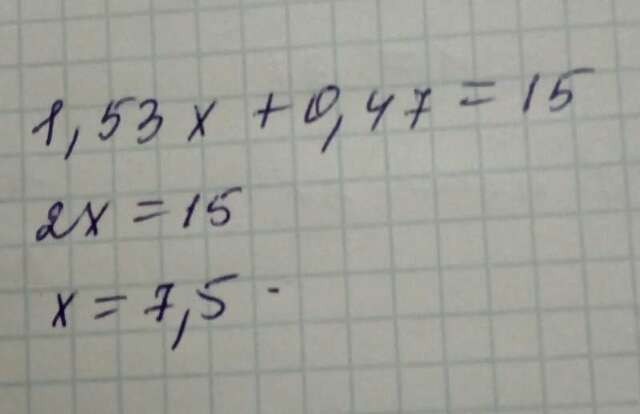 1,53x + 0,47 = 15
2x = 15
x = 7,5